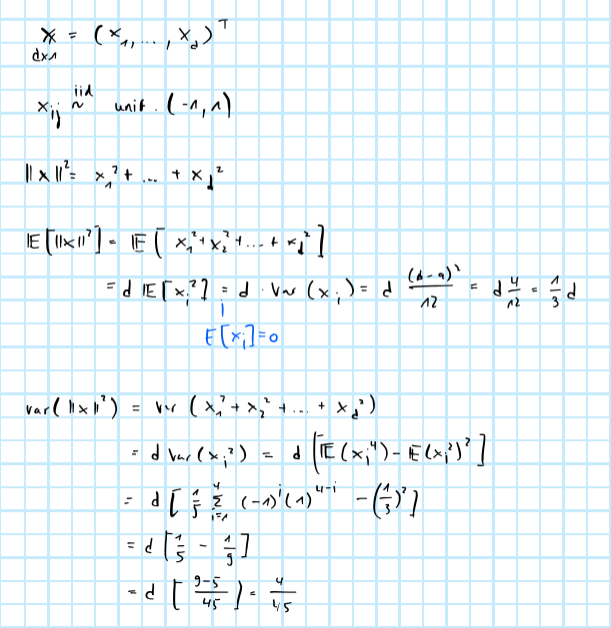 x = (x₁, ... , x_d)ᵀ
dx1
x_ij iid ~ unif. (-1, 1)
||x||² = x₁² + ... + x_d²
𝔼[||x||²] = 𝔼[ x₁² + x₂² + ... + x_d² ]
= d 𝔼[x_i²] = d · Var (x_i) = d (b-a)²/12 = d 4/12 = 1/3 d
E[x_i]=0
var( ||x||² ) = var ( x₁² + x₂² + ... + x_d² )
= d var(x_i²) = d [𝔼(x_i⁴) - 𝔼(x_i²)²]
= d [ 1/5 Σ_{i=1}^{4} (-1)^i (1)^{4-i} - (1/3)² ]
= d [ 1/5 - 1/9 ]
= d [ 9-5/45 ] = 4/45